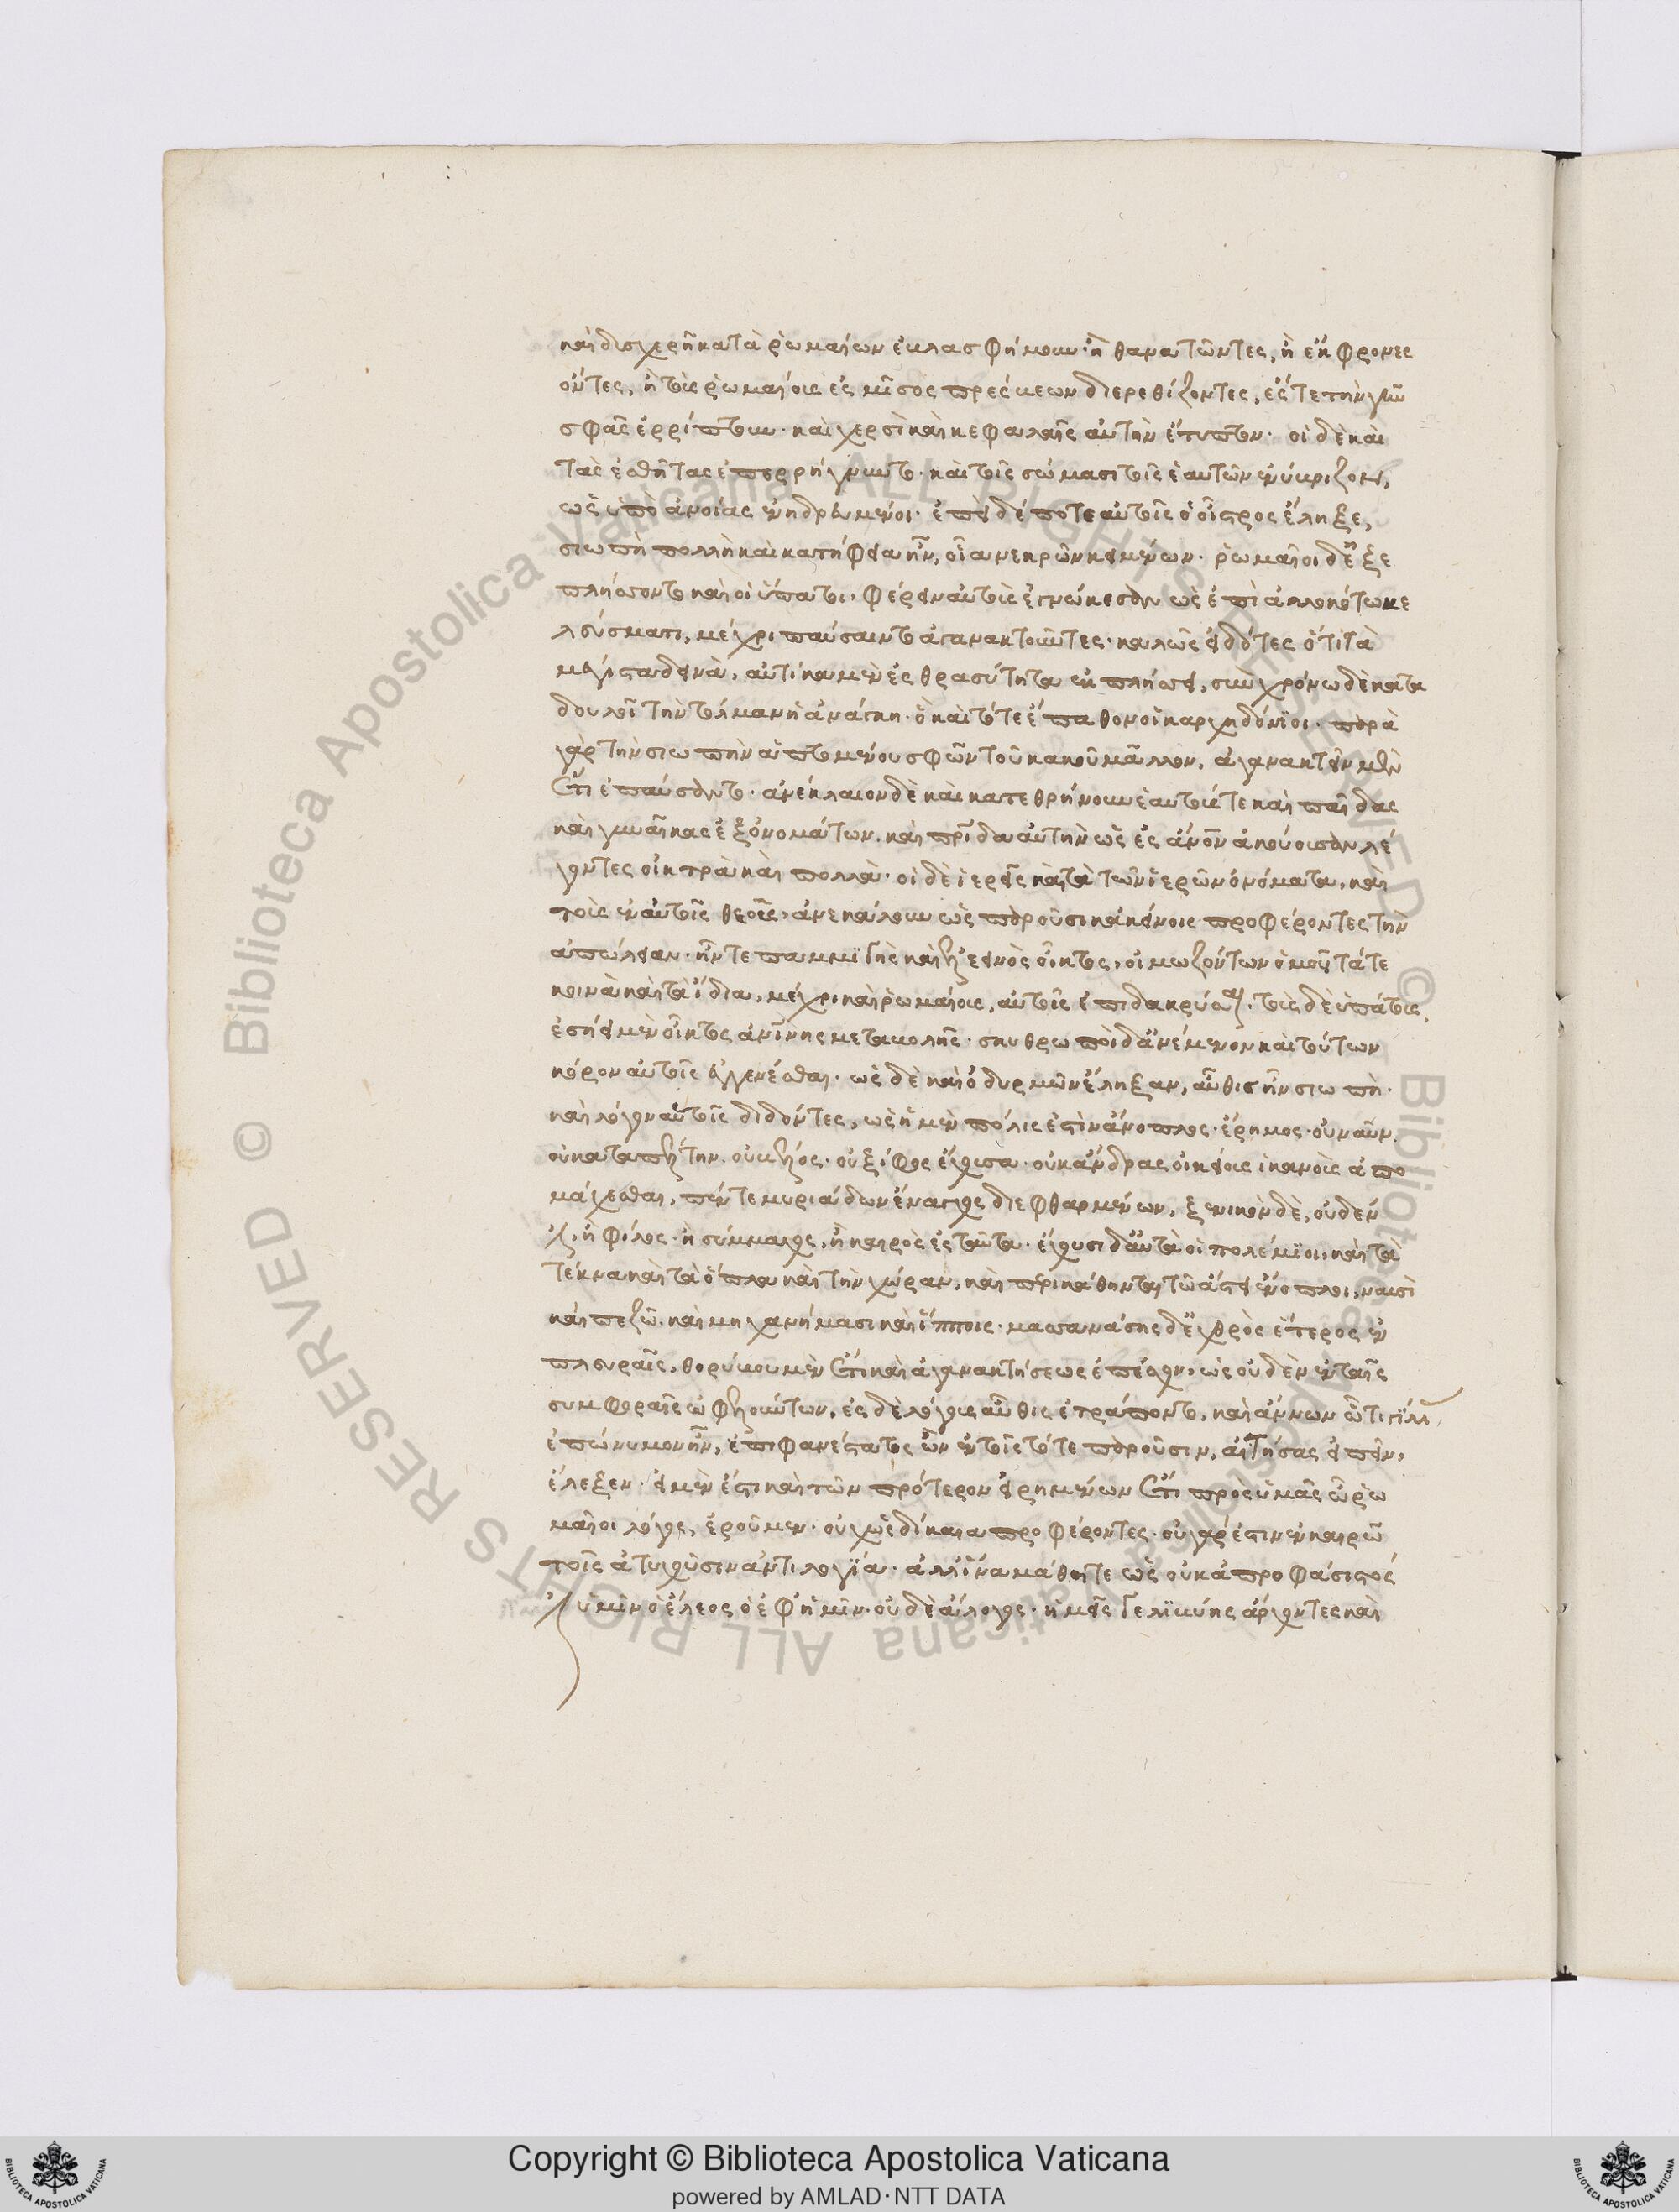 καὶ δυσχερῆ κατὰ ῥωμαίων ἐβλασφήμουν· ἢ θανατῶντες, ἢ ἔκφρονες
ὄντες, ἢ τοὺς ῥωμαίους ἐς μῖσος πρέσβεων διερεθίζοντες, ἔς τε τὴν γῆν
σφᾶς ἐρρίπτουν· καὶ χερσὶ καὶ κεφαλαῖς αὐτὴν ἔτυπτον· οἱ δὲ καὶ
τὰς ἐσθῆτας ἐπερρήγνυντο· καὶ τοῖς σώμασι τοῖς ἑαυτῶν ἐνύβριζον,
ὡς ὑπὸ ἀνοίας ἐνηδρευμένοι· ἐπεὶ δέ ποτε αὐτοῖς ὁ οἶστρος ἔληξε,
σιωπὴ πολλὴ καὶ κατήφεια ἦν, οἷα νεκρῶν κειμένων· ῥωμαῖοι δ' ἐξε
πλήσσοντο καὶ οἱ ὕπατοι, φέρειν αὐτοὺς ἐγνώκεσαν ὡς ἐπὶ ἀλλοκότω κε
λεύσματι, μέχρι παύσαιντο ἀγανακτοῦντες· καλῶς εἰδότες ὅτι τὰ
μέγιστα δεινὰ, αὐτίκα μὲν ἐς θρασύτητα ἐκπλήσσει, σὺν χρόνω δὲ κατα
δουλοῖ τὴν τόλμαν ἡ ἀνάγκη· ὃ καὶ τότε ἔπαθον οἱ καρχηδόνϊοι· παρὰ
γὰρ τὴν σιωπὴν ἁπτομένου σφῶν τοῦ κακοῦ μᾶλλον, ἀγανακτεῖν μὲν
ἔτι ἐπαύσαντο· ἀνέκλαιον δὲ καὶ κατεθρήνουν ἑαυτούς τε καὶ παῖδας
καὶ γυναῖκας ἐξ ὀνομάτων· καὶ πατρίδα αὐτὴν ὡς ἐς ἄνον ἀκούουσαν λέ
γοντες οἰκτρὰ καὶ πολλὰ· οἱ δὲ ἱερεῖς καὶ τὰ τῶν ἱερῶν ὀνόματα, καὶ
τοὺς ἐν αὐτοῖς θεοὺς, ἀνεκάλουν ὡς παροῦσι κἀκείνοις προφέροντες τὴν
ἀπώλειαν· ἦν τε παμμϊγὴς καὶ ἐλεεινὸς οἶκτος, οἰμωζόντων ὁμοῦ τά τε
κοινὰ καὶ τὰ ἴδια, μέχρι καὶ ῥωμαίους, αὐτοῖς ἐπιδακρύσαι· τοὺς δὲ ὑπάτους,
ἐσήει μὲν οἶκτος ἀνθρωπίνης μεταβολῆς· σκυθρωποὶ δ' ἀνέμενον καὶ τούτων
κόρον αὐτοῖς ἐγγενέσθαι· ὡς δὲ καὶ ὀδυρμῶν ἔληξαν, αὖθις ἦν σιωπὴ·
καὶ λόγον αὑτοῖς διδόντες, ὡς ἡ μὲν πόλις ἐστὶν ἄνοπλος· ἔρημος· οὐ ναῦν·
οὐ καταπέλτην· οὐ βέλος· οὐ ξίφος ἔχουσα· οὐκ ἄνδρας οἰκείους ἱκανοὺς ἀπο
μάχεσθαι, πέντε μυριάδων ἔναγχος διεφθαρμένων, ξενικὸν δὲ, οὐδέν
ἐστι, ἢ φίλος· ἢ σύμμαχος, ἢ καιρὸς ἐς ταῦτα· ἔχουσι δ' αὐτὰ οἱ πολέμϊοι, καὶ τὰ
τέκνα καὶ τὰ ὅπλα καὶ τὴν χώραν, καὶ περικάθηνται τῶ ἄστει ἔνοπλοι, ναυσὶ
καὶ πεζῶ· καὶ μηχανήμασι καὶ ἵπποις· μασσανάσσης δ' ἐχθρὸς ἕτερος ἐν
πλευραῖς, θορύβου μὲν ἔτι καὶ ἀγανακτήσεως ἐπέσχον, ὡς οὐδὲν ἐν ταῖς
συμφοραῖς ὠφελούντων, ἐς δὲ λόγους αὖθις ἐτράποντο, καὶ ἄννων ὧτι γίλλ
ἐπώνυμον ἦν, ἐπιφανέστατος ὢν ἐν τοῖς τότε παροῦσιν, αἰτήσας εἰπεῖν,
ἔλεξεν· εἰ μὲν ἔστι καὶ τῶν πρότερον εἰρημένων ἔτι πρὸς ὑμᾶς ὦ ῥω
μαῖοι λόγος, ἐροῦμεν· οὐχ ὡς δίκαια προφέροντες· οὐ γάρ ἐστιν ἐν καιρῶ
τοῖς ἀτυχοῦσιν ἀντιλογΐα· ἀλλ' ἵνα μάθητε ὡς οὐκ ἀπροφάσιστός
ἐστιν ὑμῖν ὁ ἔλεος ὁ ἐφ' ἡμῖν· οὐδὲ ἄλογος· ἡμεῖς γε λϊβύης ἄρχοντες καὶ